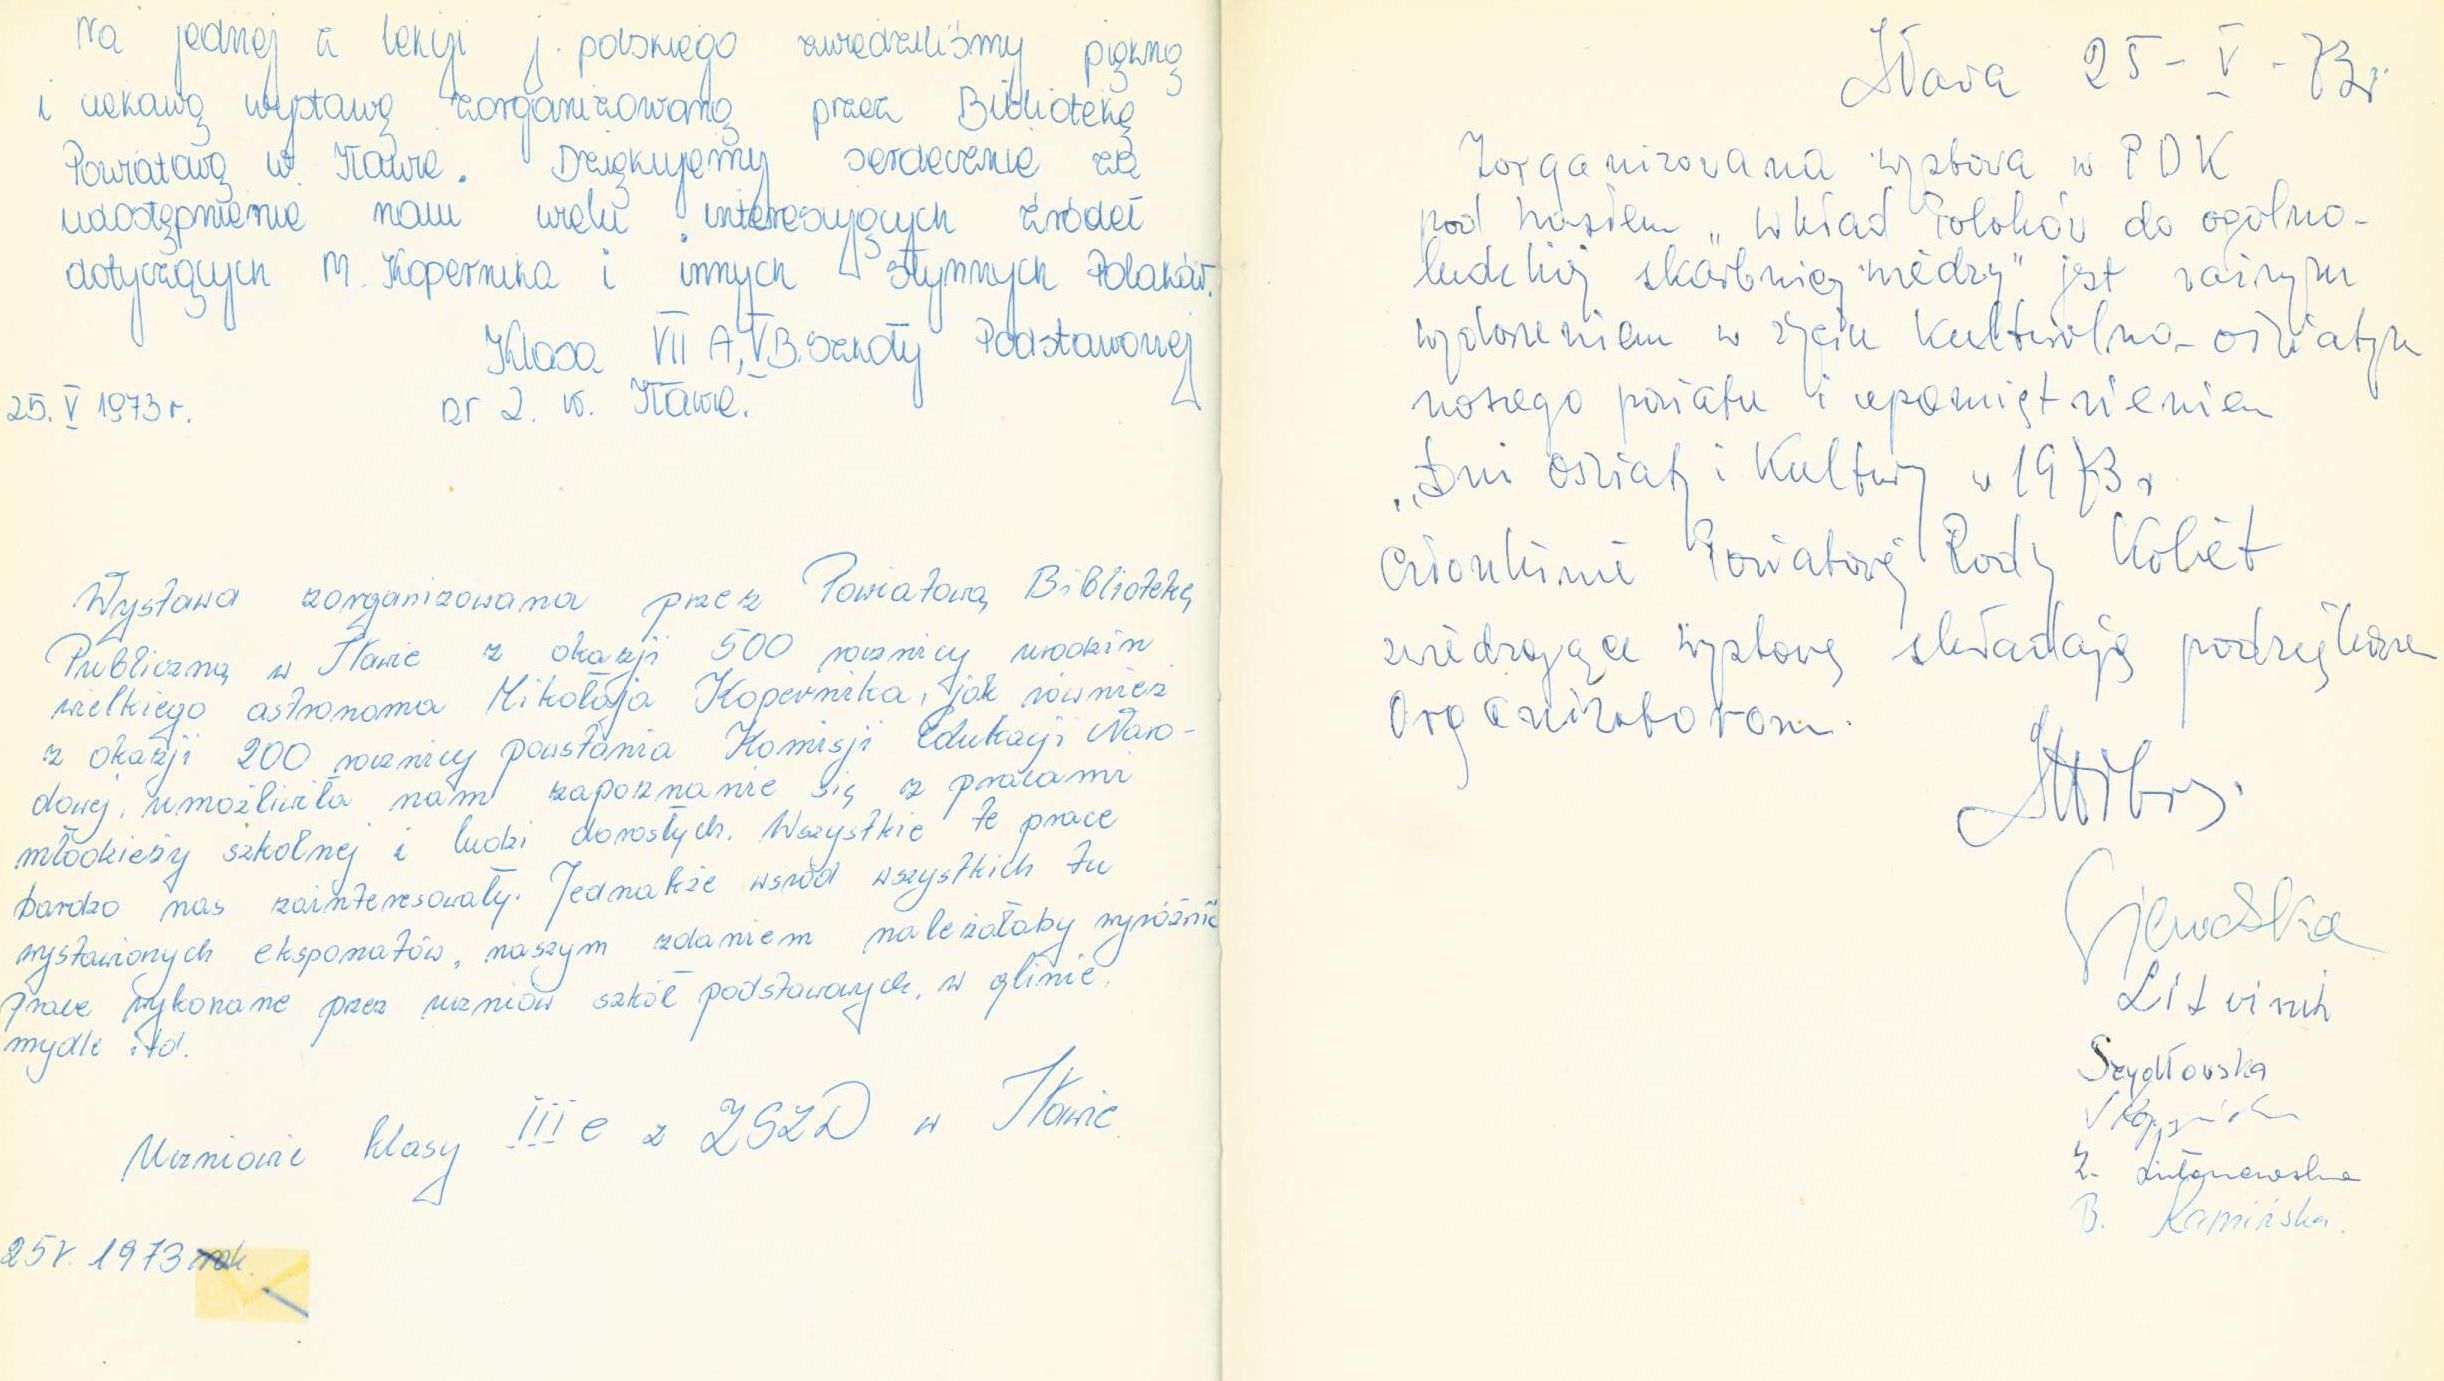 Na jednej z lekcji j. polskiego zwiedziliśmy piękną
i ciekawą wystawę zorganizowaną przez Bibliotekę
Powiatową w Iławie. Dziękujemy serdecznie za
udostępnienie nam wielu interesujących źródeł
dotyczących M. Kopernika i innych słynnych Polaków.
Klasa VII A, V B. Szkoły Podstawowej
nr 2. w. Iławie.
25. V 1973 r.
Wystawa zorganizowana przez Powiatową Bibliotekę
Publiczną w Iławie z okazji 500 rocznicy urodzin
wielkiego astronoma Mikołaja Kopernika, jak również
z okazji 200 rocznicy powstania Komisji Edukacji Naro-
dowej, umożliwiła nam zapoznanie się z pracami
młodzieży szkolnej i ludzi dorosłych. Wszystkie te prace
bardzo nas zainteresowały. Jednakże wsród wszystkich tu
wystawionych eksponatów, naszym zdaniem należałoby wyróżnić
prace wykonane przez uczniów szkół podstawowych, w glinie,
mydle itd.
Uczniowie klasy III e z ZSZD w Iławie.
25 V. 1973 rok.
Iława 25 - V - 73 r
Zorganizowana wystawa w PDK
pod hasłem „wkład Polaków do ogólno-
ludzkiej skarbnicy wiedzy" jest ważnym
wydarzeniem w życiu kulturalno-oświatym
naszego powiatu i upamiętnieniem
„Dni Oświaty i Kultury w 1973 r
Członkinie Powiatowej Rady Kobiet
zwiedzające wystawę składają podziękowa
Organizatorom.
Szydłowska
Z. Antonowska
B. Kamińska.